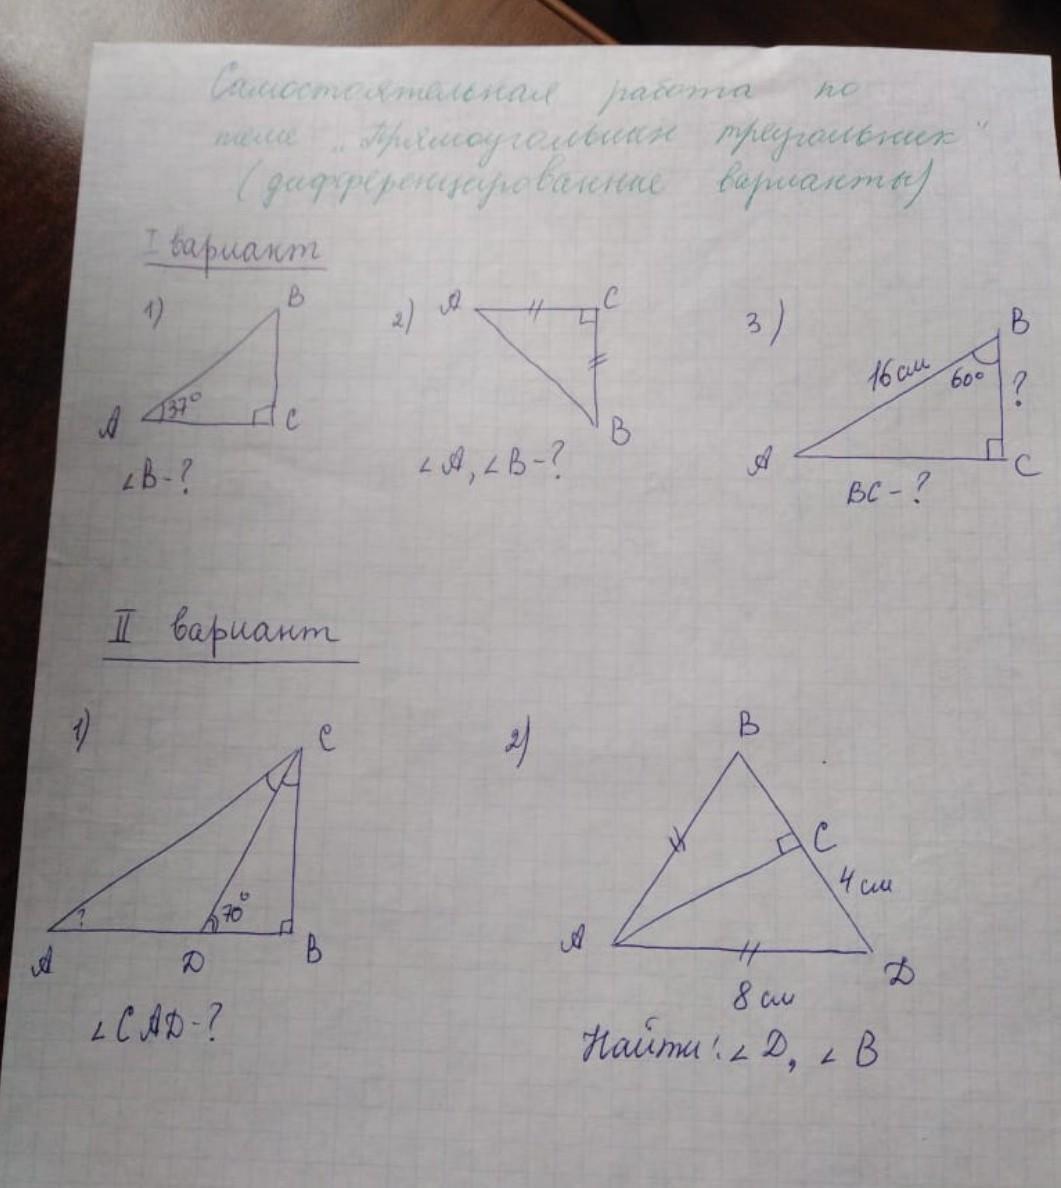 Самостоятельная работа по
теме "Прямоугольный треугольник"
(дифференцированные варианты)
I вариант
1)
B
37°
A
C
∠B-?
2)
A
C
B
∠A, ∠B-?
3)
B
16 см
60°
?
A
C
BC-?
II вариант
1)
C
?
70°
A
D
B
∠CAD-?
2)
B
C
4 см
A
D
8 см
Найти: ∠D, ∠B